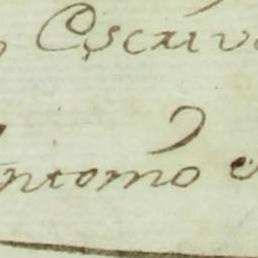 Escriva
Antonio e